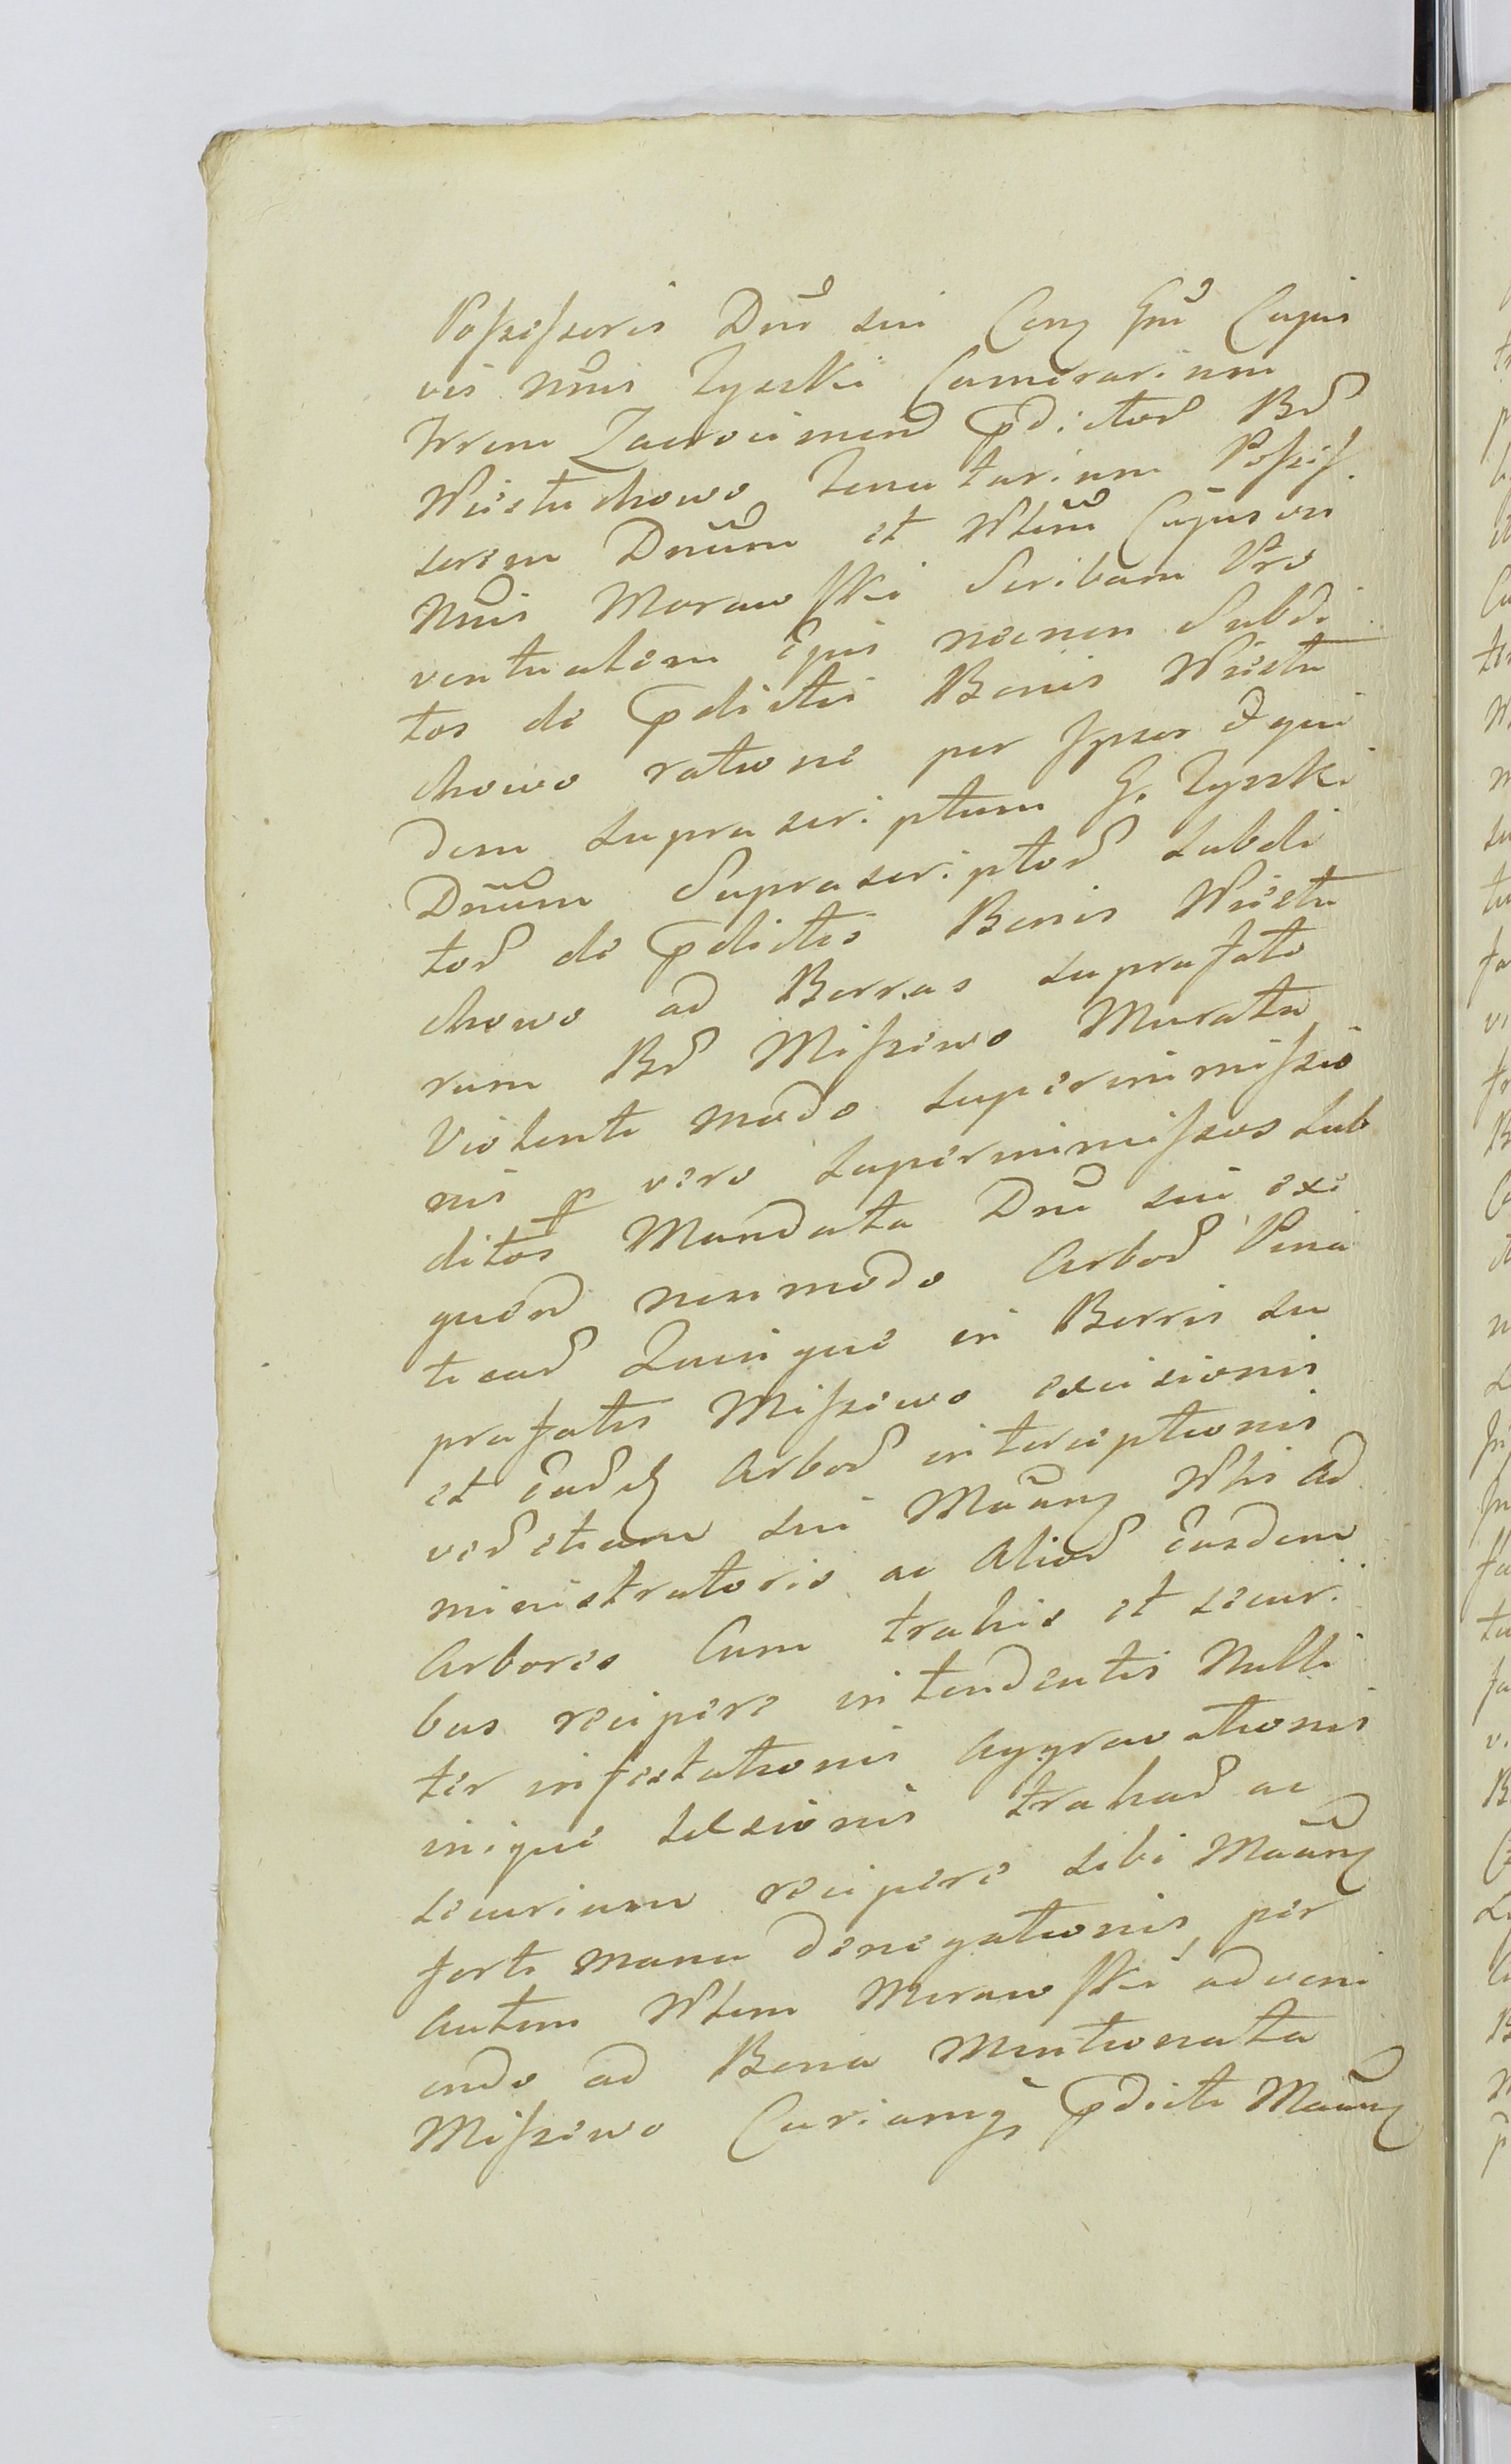 Possessoris Dnī sui Conꝫ Gnū Cujus
vis Nnīs Zyzski Camerarium
Trrem Zacrocimend Pdictor̄ Br̄
Wistuchowo Tenutarium Posses
sorem Dnūm et Nblem̄ Cujusvis
Nnīs Morawski Scribam Pro
ventualem Ejus necnon Subdi
tos de Pdictis Bonis Wistu
chowo ratione per Ipsos et qui
dem suprascriptum G. Zyzski
Dnūm Suprascriptor̄ Subdi
tor̄ de Pdictis Bonis Wistu
chowo ad Borras suprafato
rum Br̄ Misiewo Murata
Violente modo superimmissio
nis p vero superimmissos Sub
ditos Mandata Dnī sui exe
quend nonmodo Arbor̄ Pina
ticar̄ Quinque in Borris su
prafatis Missewo excisionis
et Eardꝫ Arbor̄ interceptionis
ver̄ etiam sui Māanꝫ Nblis Ad
ministratoris ac Alior̄ Easdem
Arbores Cum trahis et securi
bus recipere intendentis Nulli
ter infestationis Aggravationis
inique laesionis trahar̄ ac
securium recipere sibi Māanꝫ
forti manu denegationis per
Autem Nblem Morawski adveni
endo ad Bona Mentionata
Missewo Curiamq̄ Pdicti Māanꝫ